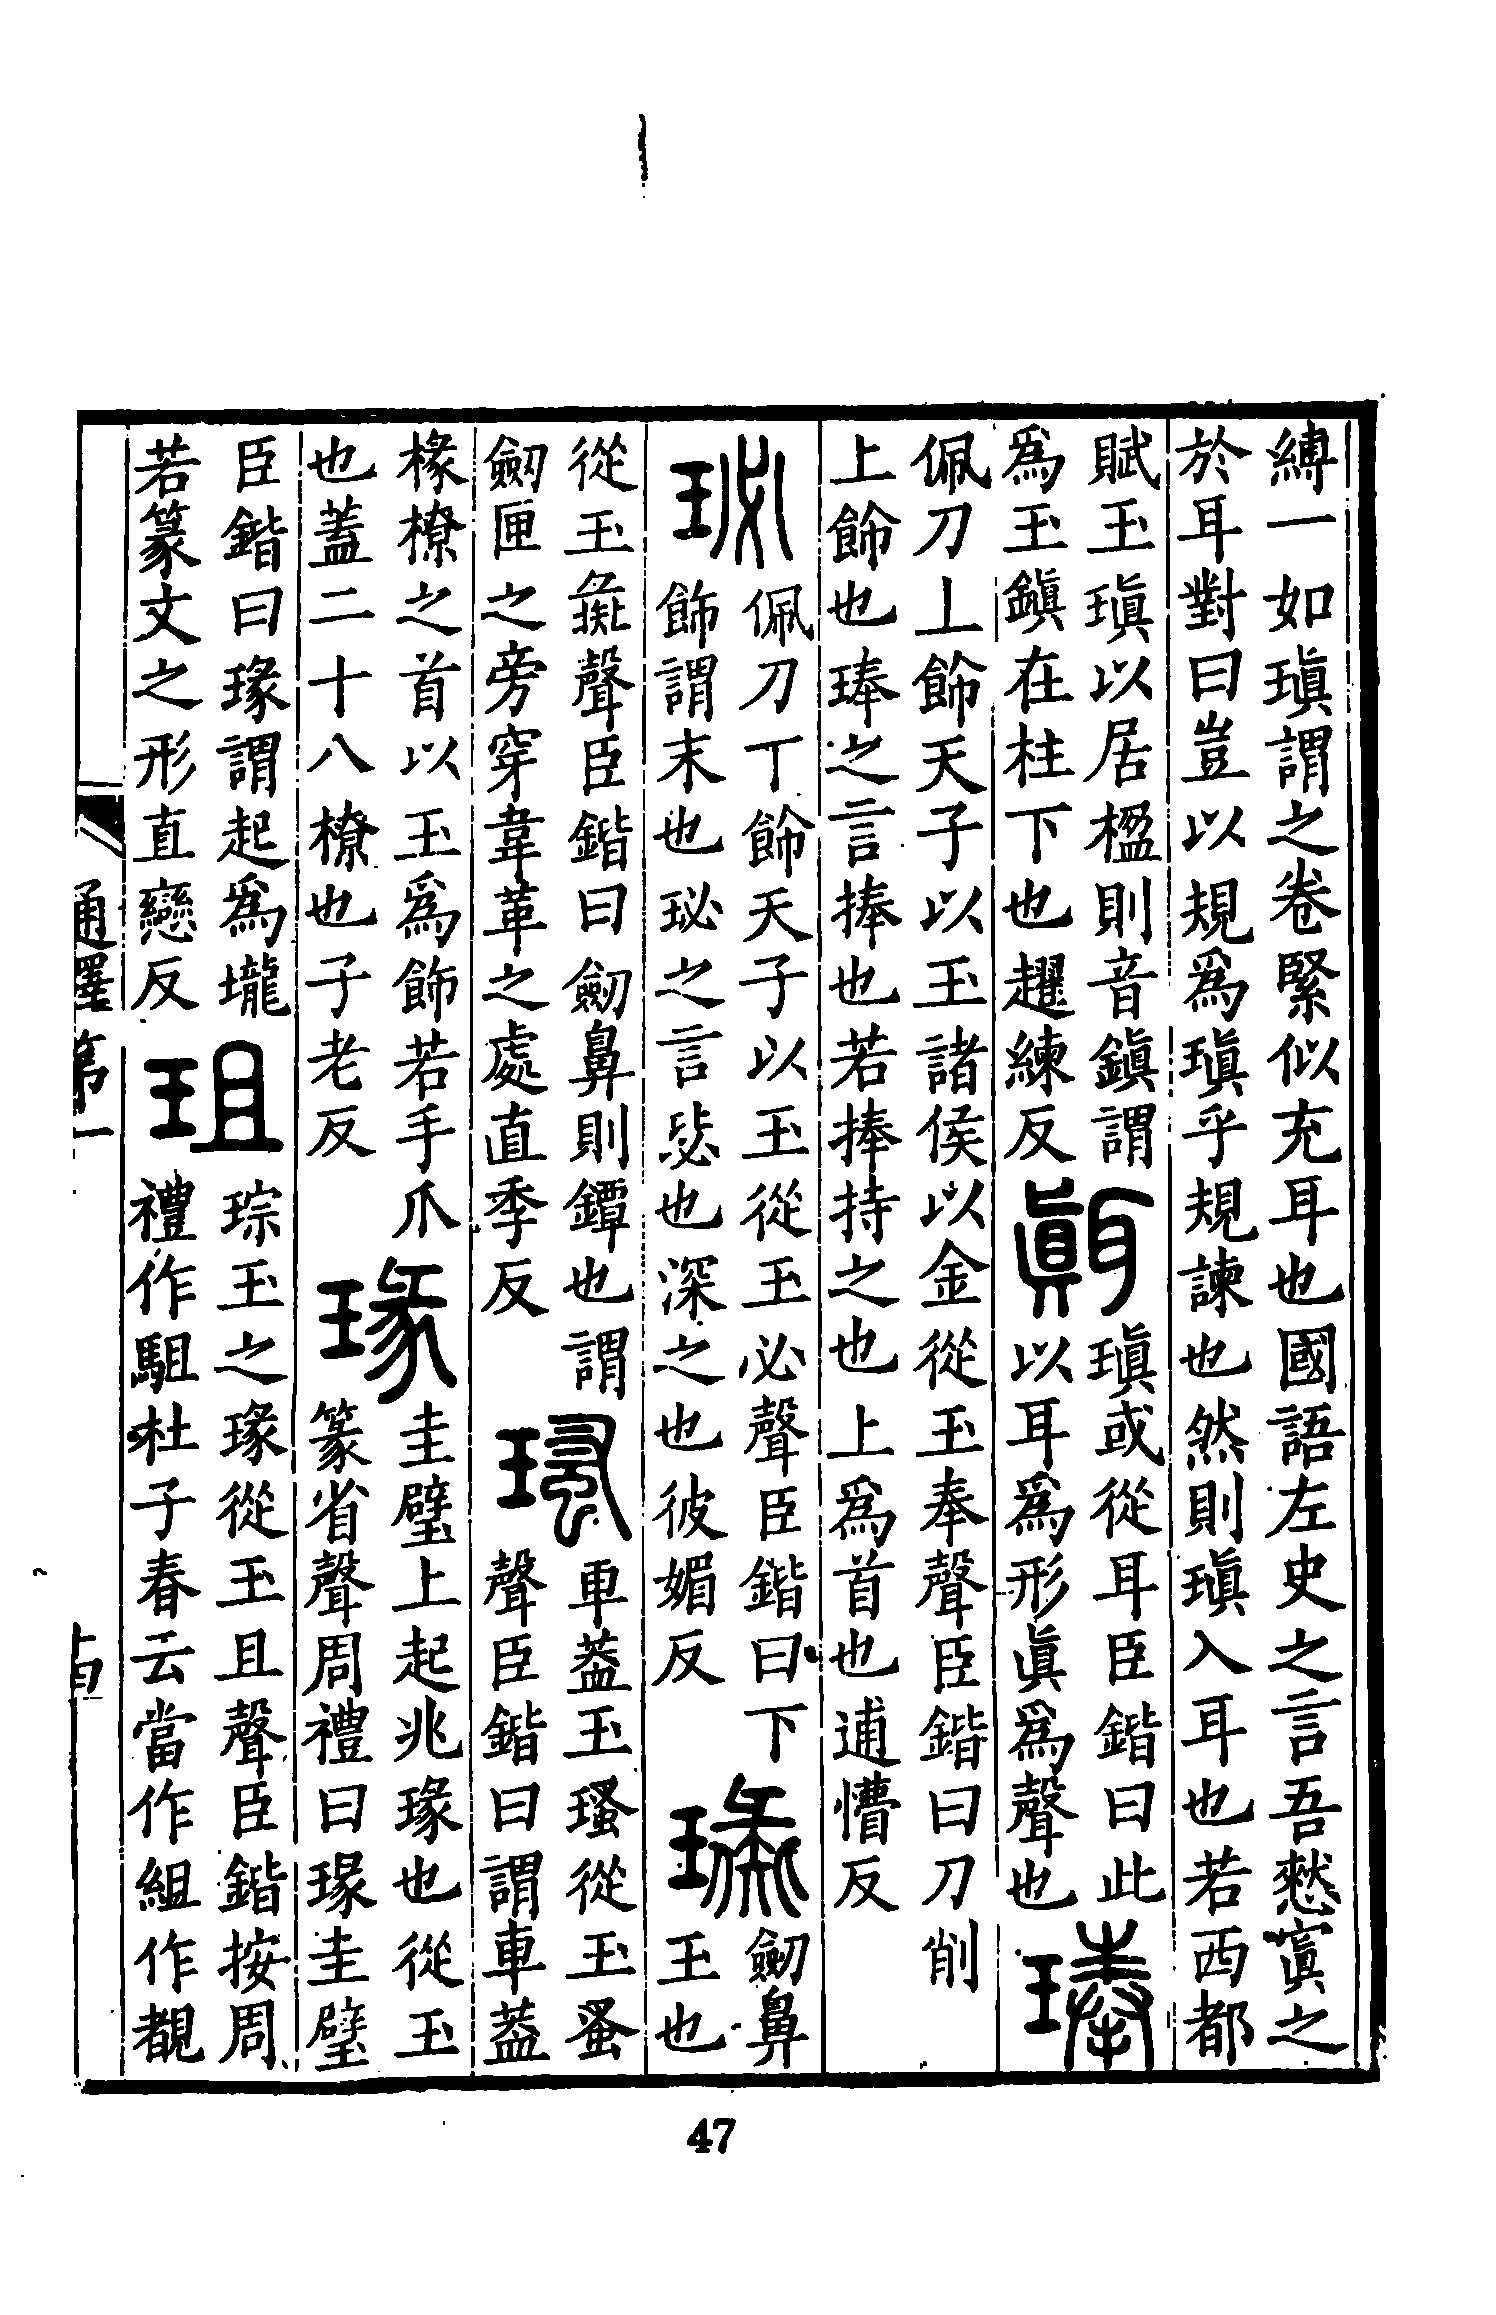 縳一如瑱謂之卷緊似充耳也國語左史之言吾憖寘之
於耳對曰豈以規爲瑱乎規諫也然則瑱入耳也若西都
賦玉瑱以居楹則音鎮謂
爲玉鎮在柱下也趯練反
𦗁
瑱或從耳臣鍇曰此
以耳爲形眞爲聲也
琫
佩刀丄飾天子以玉諸侯以金從玉奉聲臣鍇曰刀削
上飾也琫之言捧也若捧持之也上爲首也逋懵反
珌
佩刀丅飾天子以玉從玉必聲臣鍇曰下
飾謂末也珌之言毖也深之也彼媚反
璏
劒鼻
玉也
從玉彘聲臣鍇曰劒鼻則鐔也謂
劒匣之旁穿韋革之處直季反
瑵
車葢玉瑵從玉蚤
聲臣鍇曰謂車葢
椽橑之首以玉爲飾若手爪
也蓋二十八橑也子老反
瑑
圭璧上起兆瑑也從玉
篆省聲周禮曰瑑圭璧
臣鍇曰瑑謂起爲壠
若篆文之形直戀反
珇
琮玉之瑑從玉且聲臣鍇按周
禮作駔杜子春云當作組作覩
通釋第一
47